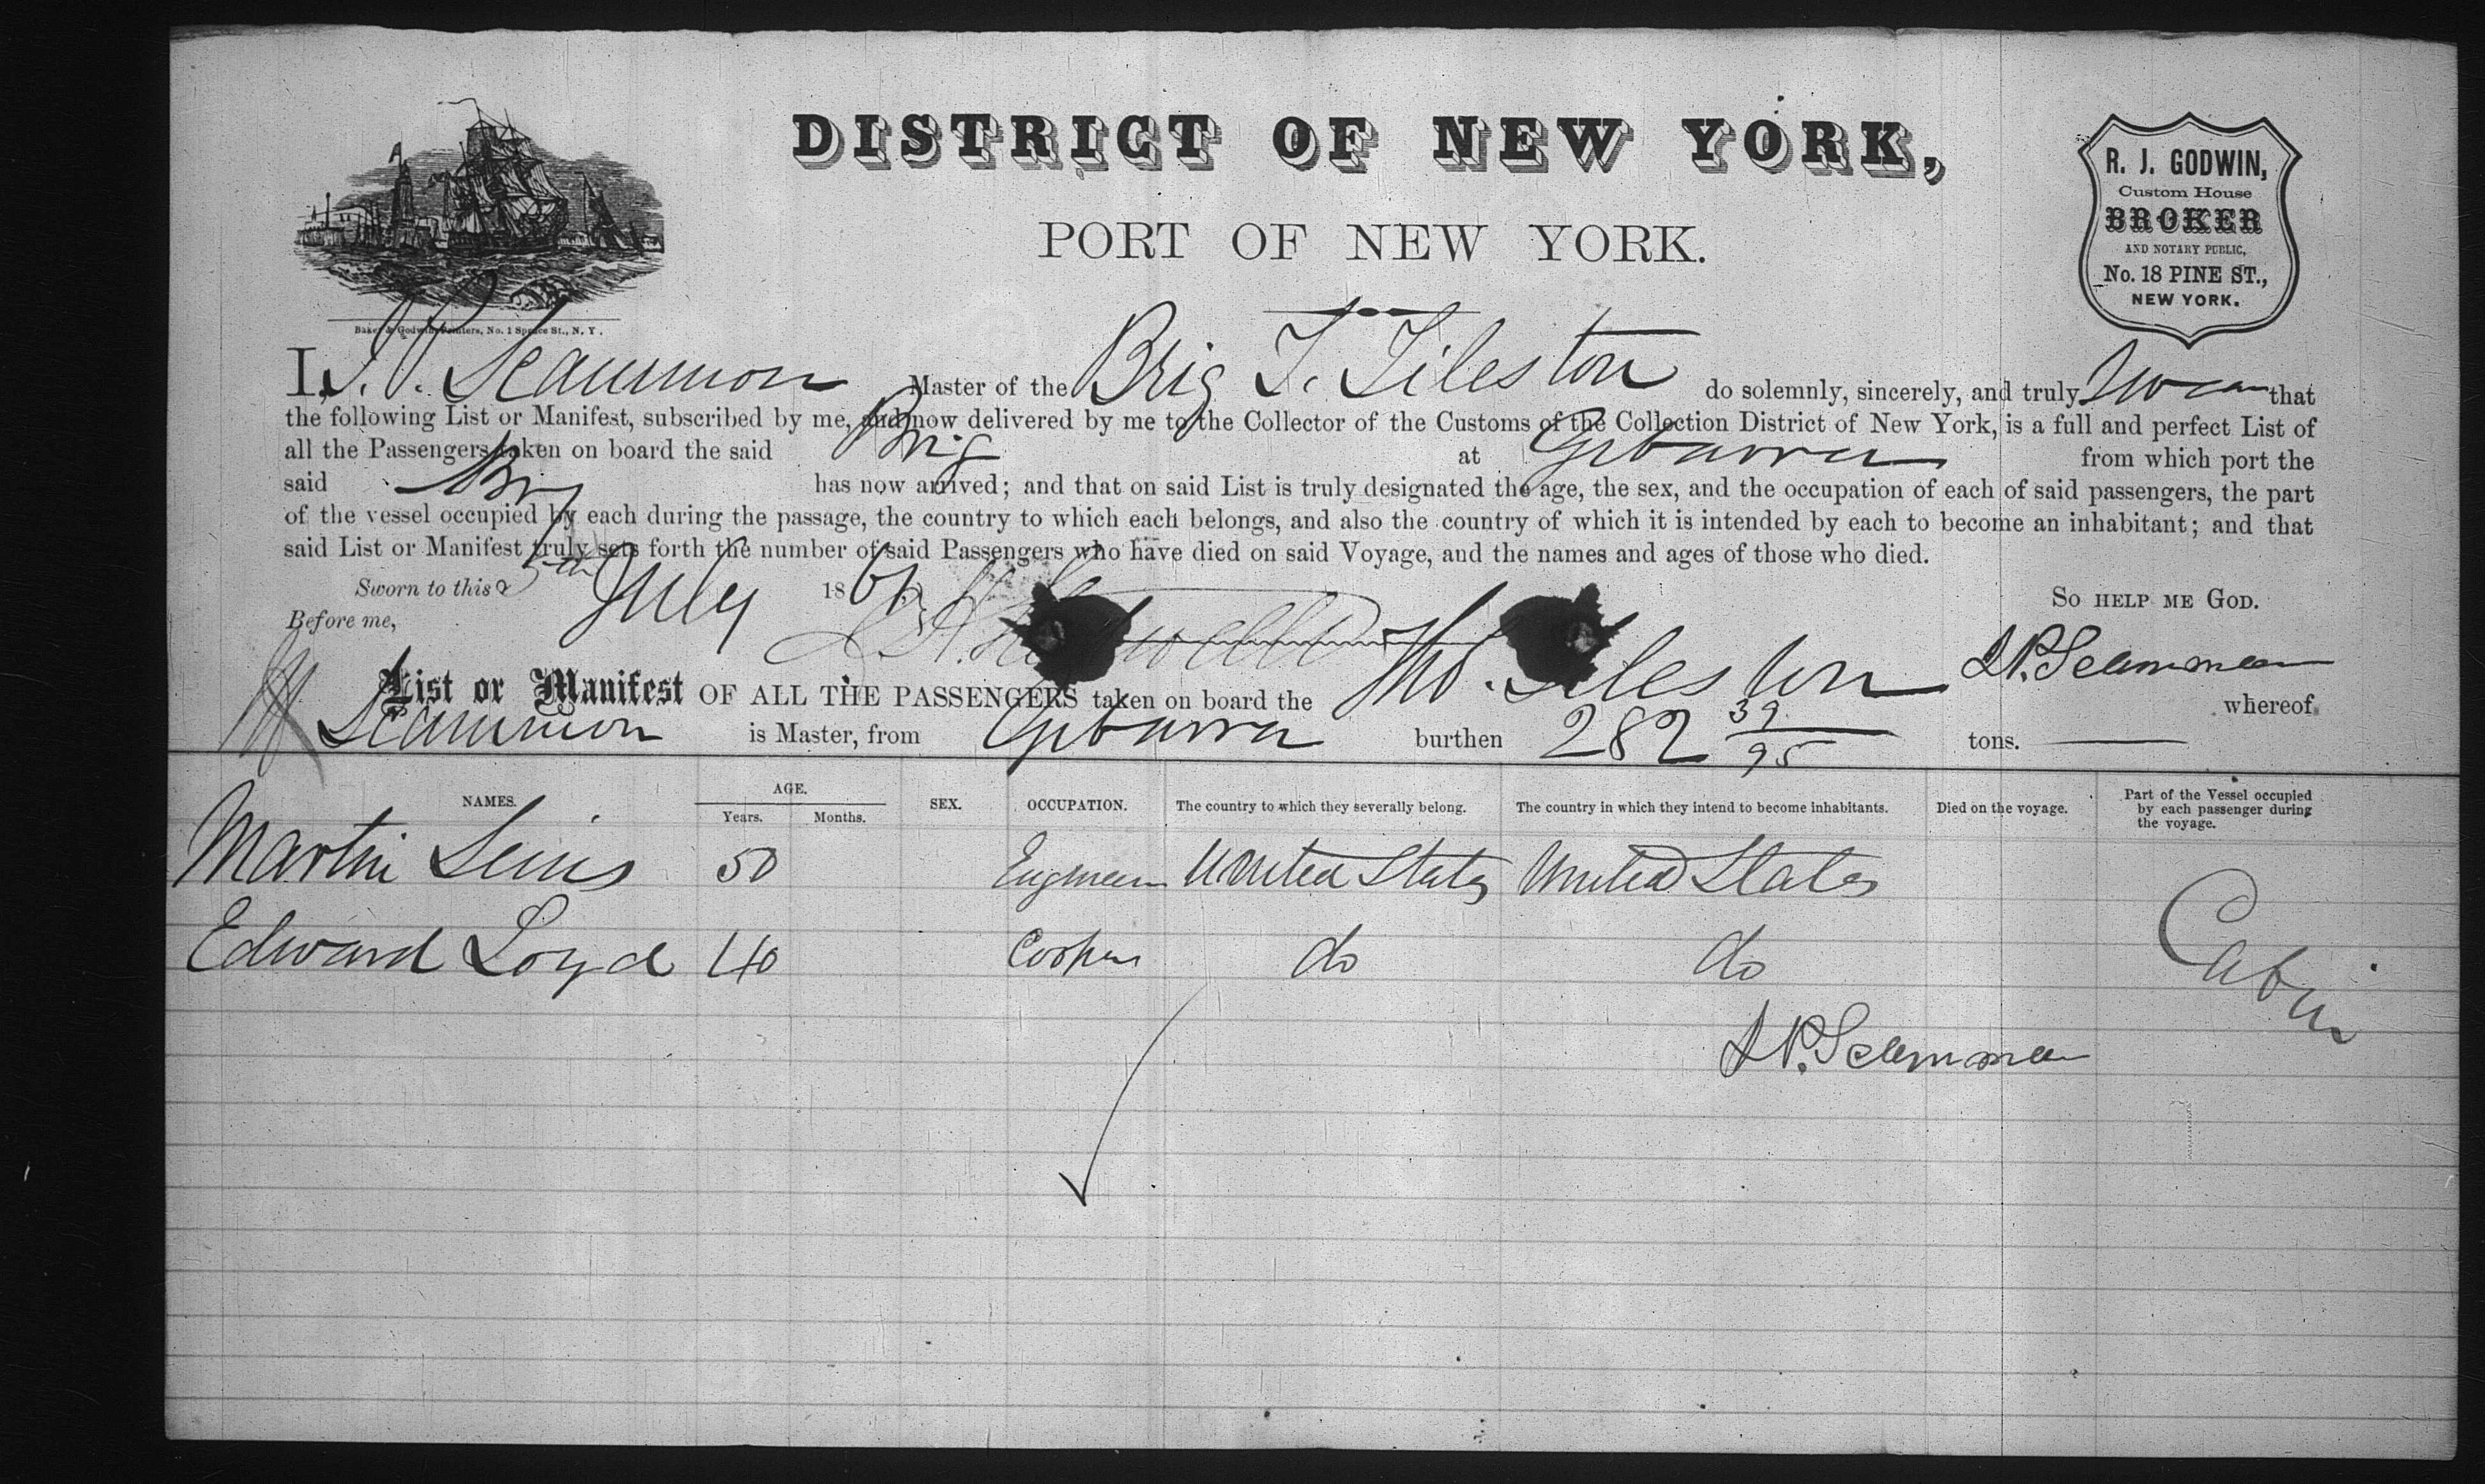 DISTRICT OF NEW YORK,
PORT OF NEW YORK.
R. J. GODWIN,
Custom House
BROKER
AND NOTARY PUBLIC,
No. 18 PINE ST.,
NEW YORK.
Baker & Godwin, Printers, No. 1 Spruce St., N. Y.
I, J. P. Scammon Master of the Brig T. Tileston do solemnly, sincerely, and truly swear that
the following List or Manifest, subscribed by me, and now delivered by me to the Collector of the Customs of the Collection District of New York, is a full and perfect List of
all the Passengers taken on board the said Brig at Gibarra from which port the
said Brig has now arrived; and that on said List is truly designated the age, the sex, and the occupation of each of said passengers, the part
of the vessel occupied by each during the passage, the country to which each belongs, and also the country of which it is intended by each to become an inhabitant; and that
said List or Manifest truly sets forth the number of said Passengers who have died on said Voyage, and the names and ages of those who died.
Sworn to this 5th July 1861 So help me God.
Before me,
J. P. Scamman
List or Manifest OF ALL THE PASSENGERS taken on board the Tho. Tileston whereof
Scammon is Master, from Gibarra burthen 282 39/95 tons.
NAMES. AGE. SEX. OCCUPATION. The country to which they severally belong. The country in which they intend to become inhabitants. Died on the voyage. Part of the Vessel occupied by each passenger during the voyage.
Years. Months.
Martin 50 Engineer United States United States
Edward Loyd 40 Cooper do do Cabin
J. P. Scamman